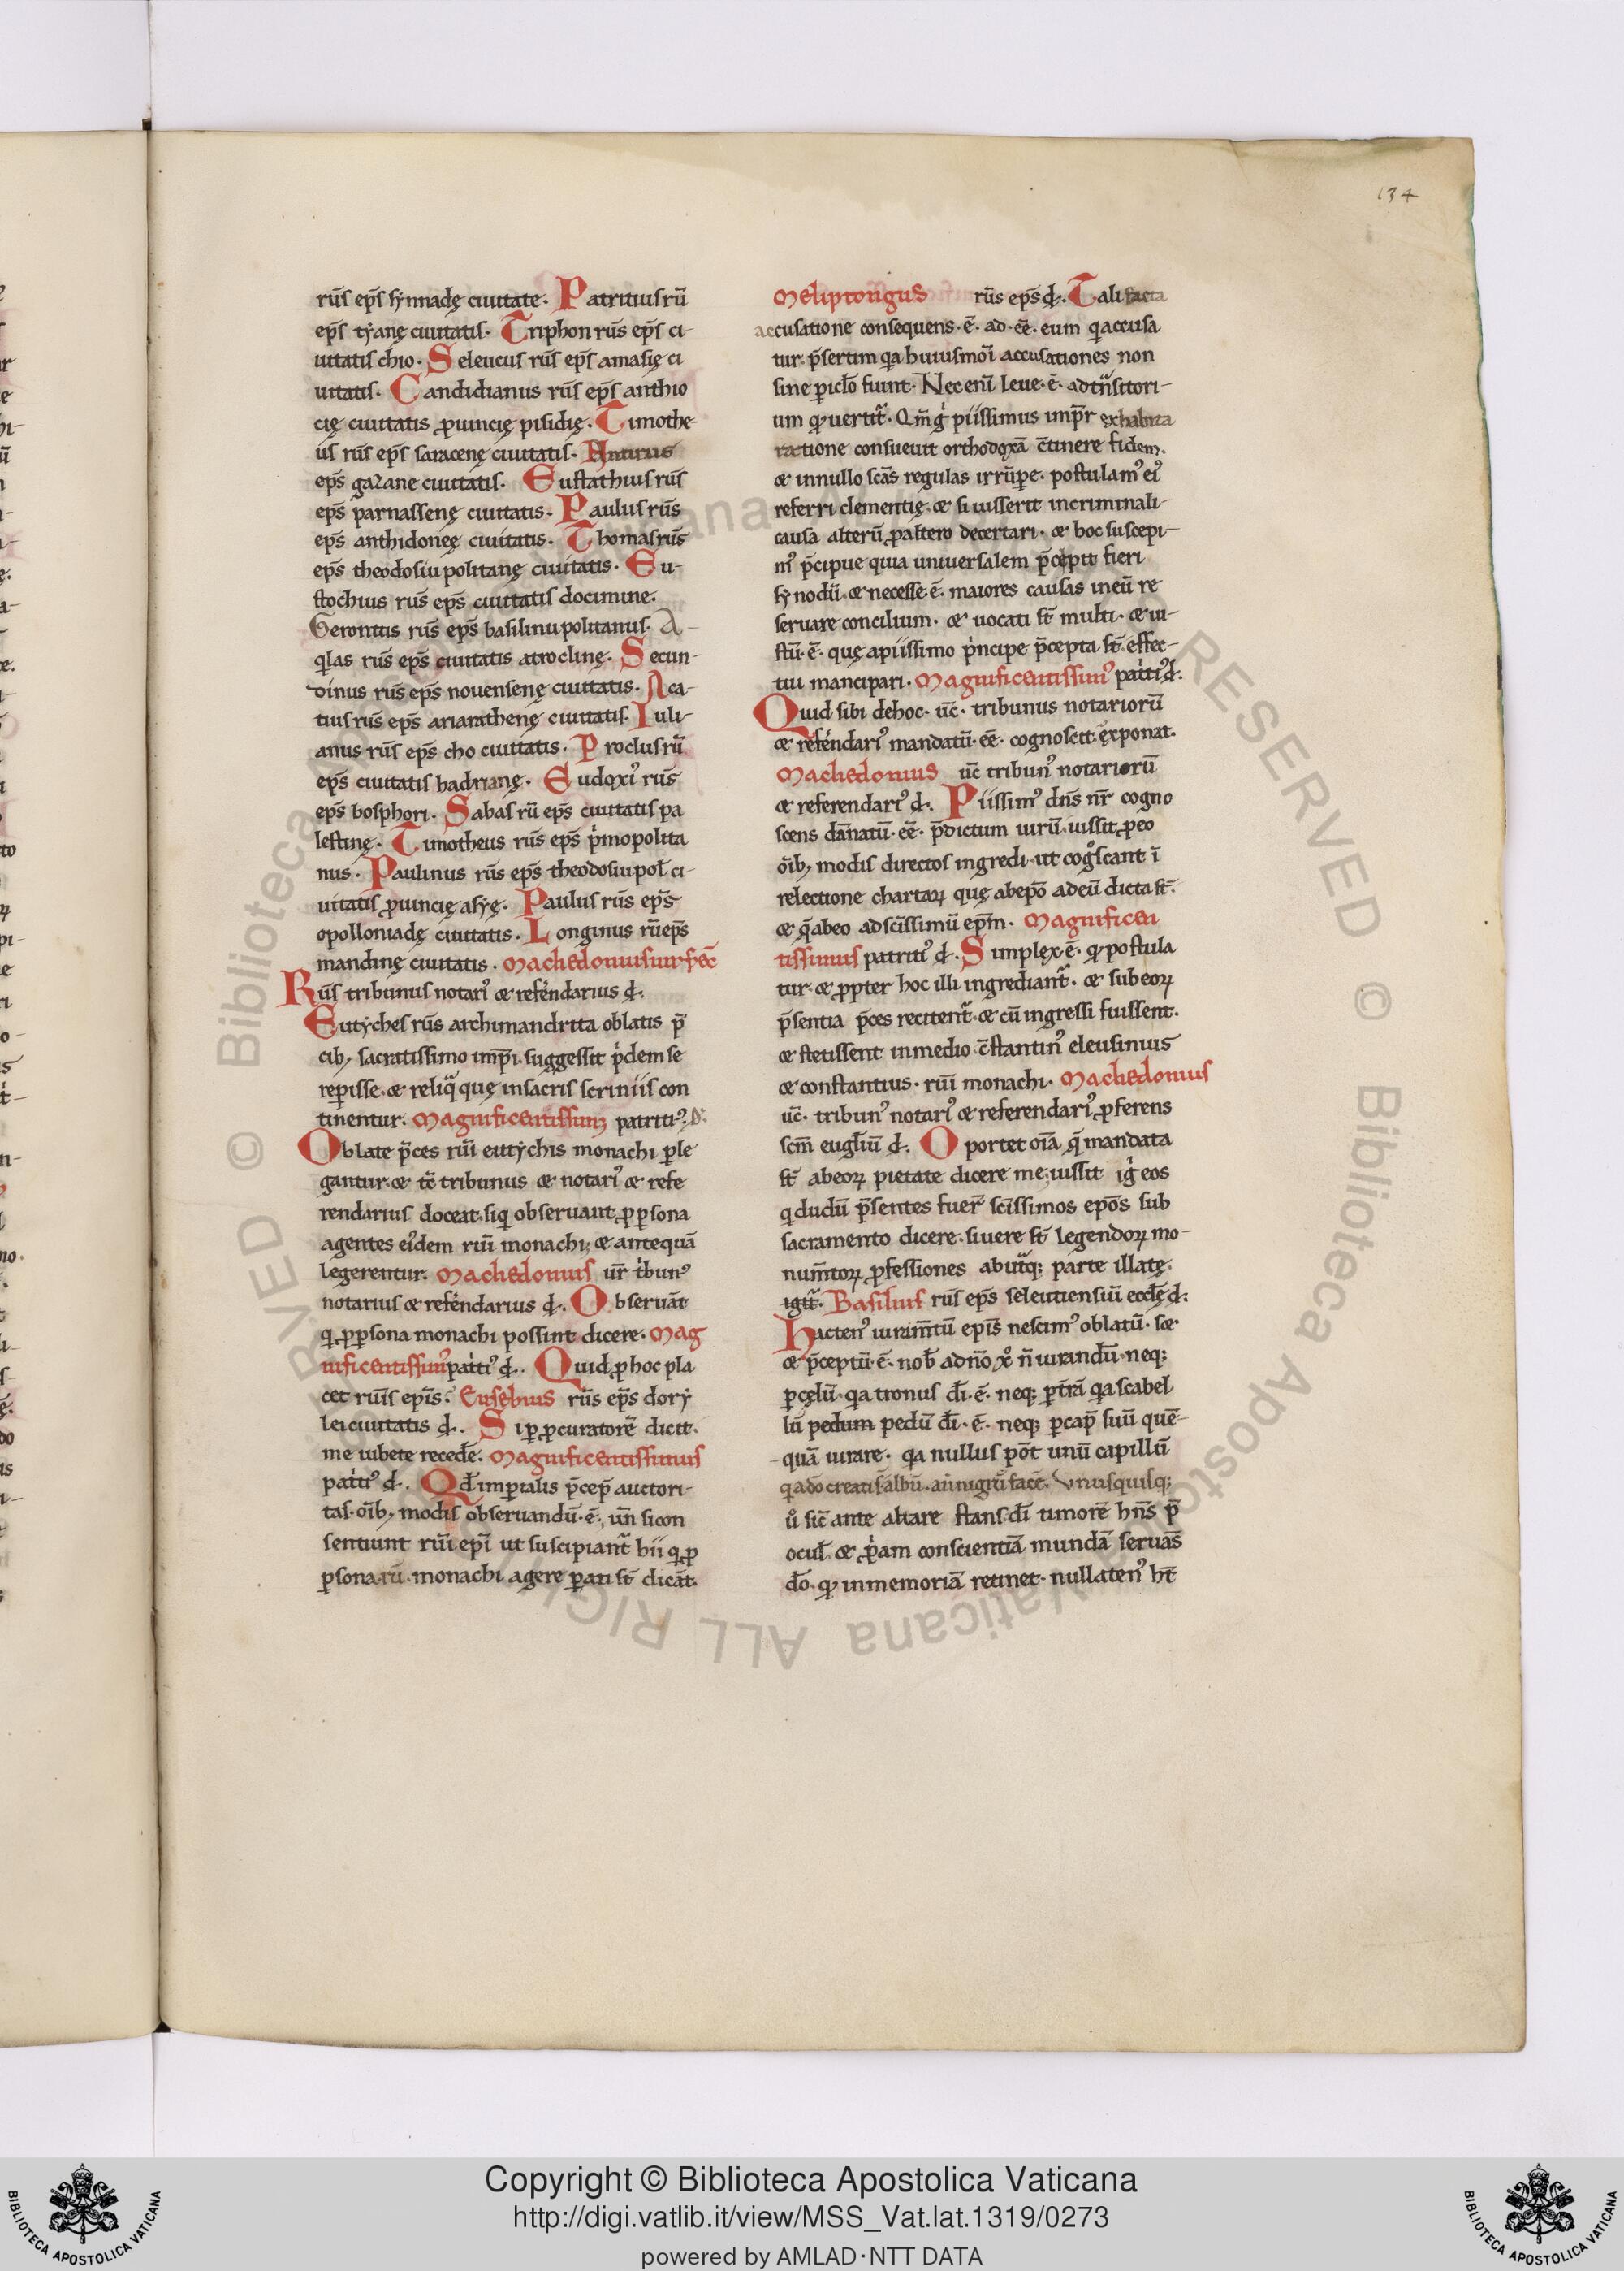 134
rūs eps̄ synnadę ciuitate. Patritius rū
eps̄ tyanę ciuitatis. Triphon rūs eps̄ ci-
uitatis chio. Seleucus rūs eps̄ amasię ci
uitatis. Candidianus rūs eps̄ anthio
cię ciuitatis ꝓuincię pisidię. Timothe-
us rūs eps̄ saracenę ciuitatis.
eps̄ gazane ciuitatis. Eustathius rūs
eps̄ parnassenę ciuitatis. Paulus rūs
eps̄ anthidoneę ciuitatis. Thomas rūs
eps̄ theodosiupolitanę ciuitatis. Eu-
stochius rūs eps̄ ciuitatis docimine.
Gerontus rūs eps̄ basilinupolitanus. A-
qlas rūs eps̄ ciuitatis atroclinę. Secun-
dinus rūs eps̄ nouensenę ciuitatis. Aca-
tius rūs eps̄ ariarathenę ciuitatis. Iuli-
anus rūs eps̄ cho ciuitatis. Proclus rū
eps̄ ciuitatis hadrianę. Eudoxi᾽ rūs
eps̄ bosphori. Sabas rū eps̄ ciuitatis pa
lestinę. Timotheus rūs eps̄ pͥmopolita
nus. Paulinus rūs eps̄ theodosiupol̄ ci-
uitatis ꝓuincię asyę. Paulus rūs eps̄
opolloniadę ciuitatis. Longinus rū eps̄
mandinę ciuitatis. Machedonius uir sēc
Rūs tribunus notari᾽ & referendarius đ.
Eutyches rūs archimandrita oblatis p̄
cib; sacratissimo imp̄i. suggessit pͥdem se
reꝑisse. & reliq̈ quę insacris scriniis con
tinentur. Magnificentissim; patriti᾽. đ.
Oblate p̄ces rūi eutychis monachi ꝑle
gantur. & tc̄ tribunus & notari᾽ & refe
rendarius doceat. siqͥ obseruant ꝓ ꝑsona
agentes ei᾽dem rūi monachi; & antequā
legerentur. Machedonius ur̄ tͥbun᾽
notarius & referendarius đ. Obseruāt
qͥ ꝓ ꝑsona monachi possint dicere. Mag
nificentissim᾽ patͥti᾽ đ. Quid ꝓ hoc pla
cet rūis epīs. Eusebius rūs eps̄ dory
lei ciuitatis đ. Si ꝑ ꝓcuratorē dicit.
me iubete recedē. Magnificentissimus
patͥti᾽ đ. Qđ imꝑialis p̄cep̄ auctori-
tas. oīb; modis obseruandū. ē. uñ si con
sentiunt rūi epī ut suscipiant᷑ hii qͥ ꝓ
ꝑsona rū monachi agere ꝑati st̄ dicāt.
Meliptongus rūs eps̄ đ. Tali facta
accusatione consequens. ē. ad. ēē. eum qͥ accusa
tur. p̄sertim qͣa huiusmōi accusationes non
sine ꝑicl̄o fiunt. Nec enī leue. ē.
piissimus imp̄r exhabita
ratione consueuit orthodoxā c̄tinere fidem.
& innullo scās regulas irrūpe. postulam᾽ ei᾽
referri clementię. & si iusserit incriminali-
causa alterū ꝓ altero decertari. & hoc suscepi-
m᾽ p̄cipue quia uniuersalem p̄cepit fieri
synodū. & necesse. ē. maiores causas ineū re
seruare concilium. & uocati st̄ multi. & iu-
stū. ē. quę apiissimo pͥncipe p̄cepta st̄. effec-
tui mancipari. Magnificentissim᾽ patͥti᾽ đ.
Quid sibi dehoc. uc̄. tribunus notariorū
& referendari᾽ mandatū. ēē. cognoscit. exponat.
Machedonius uc̄ tribun᾽ notariorū
& referendari᾽ đ. Piissim᾽ dn̄s nr̄ cogno
scens dānatū. ēē. p̄dictum uirū. iussit ꝓ eo
oīb; modis directos ingredi. ut cogͦscant ī
relectione chartaꝝ quę abepō adeū dicta st̄.
& q̄ abeo ad sc̄issimū ep̄m. Magnificen
tissimus patriti᾽ đ. Simplex. ē. qđ postula
tur. & ꝓpter hoc illi ingrediant᷑. & sub eoꝝ
p̄sentia p̄ces recitent᷑. & cū ingressi fuissent.
& stetissent inmedio. c̄stantin᾽ eleusinius
& constantius. rūi monachi. Machedonius
uc̄. tribun᾽ notari᾽ & referendari᾽ ꝓferens
scm̄ eugl̄iū đ. Oportet oīa q̄ mandata
st̄ abeoꝝ pietate dicere me. iussit igͥ eos
qͥ dudū p̄sentes fuer̄ sc̄issimos epōs sub
sacramento dicere. si uere st̄ legendoꝝ mo-
num̄toꝝ ꝓfessiones abutͣq; parte illatę.
igit᷑. Basilius rūs eps̄ seleutiensiū eccl̄ę đ.
Hacten᾽ iuram̄tū epīs nescim᾽ oblatū. s&
& p̄ceptū. ē. nob̄ adn̄o xͦ n̄ iurandū. neq;
ꝑ cęlū. qͣa tronus dī. ē. neq; ꝑ t̄rā qͣa scabel
lū pedum pedū dī. ē. neq; ꝑ cap̄ suū quē-
quā iurare. qͣa nullus pōt unū capillū
Unusquisq;
uͦ sic̄ ante altare stans. dī timorē hn̄s p̄
ocul̄. & ꝓpͥam conscientiā mundā seruās
dō. qđ inmemoriā retinet. nullaten᾽ ht̄
© Biblioteca Apostolica Vaticana ALL RIGHTS RESERVED
Copyright © Biblioteca Apostolica Vaticana
http://digi.vatlib.it/view/MSS_Vat.lat.1319/0273
powered by AMLAD·NTT DATA
BIBLIOTECA APOSTOLICA VATICANA
BIBLIOTECA APOSTOLICA VATICANA